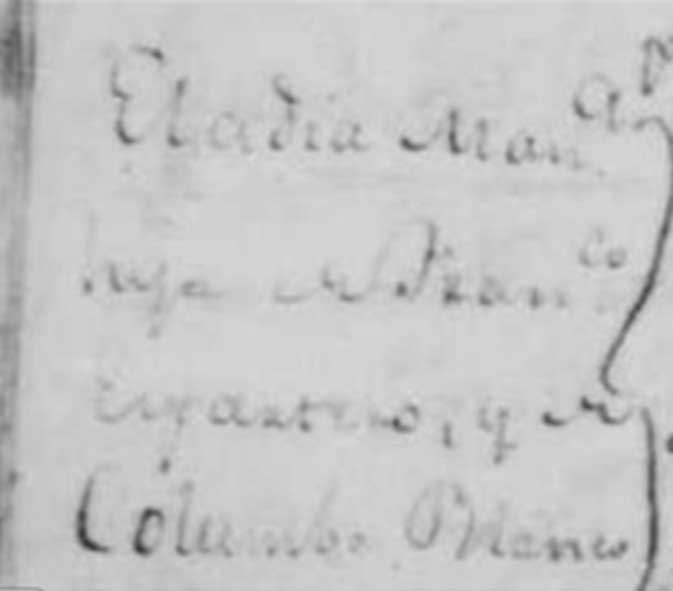 Eladia Man.ª
hija de Fran.co
y de
Columba Blanco